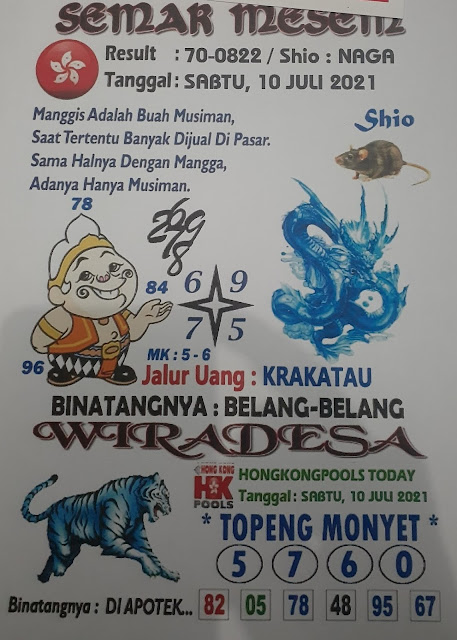 SEMAR MESEM
Result : 70-0822 / Shio : NAGA
Tanggal : SABTU, 10 JULI 2021
Manggis Adalah Buah Musiman,
Saat Tertentu Banyak Dijual Di Pasar.
Sama Halnya Dengan Mangga,
Adanya Hanya Musiman.
Shio
78
84
96
6 9
7 5
MK : 5 - 6
Jalur Uang : KRAKATAU
BINATANGNYA : BELANG-BELANG
WIRADESA
HONG KONG
HK
POOLS
HONGKONGPOOLS TODAY
Tanggal : SABTU, 10 JULI 2021
* TOPENG MONYET *
5 7 6 0
Binatangnya : DI APOTEK... 82 05 78 48 95 67